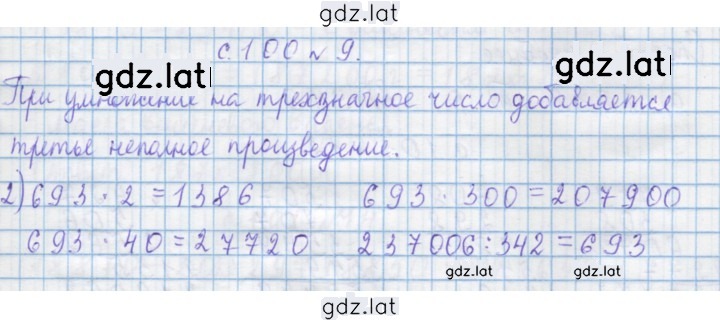 gdz.lat
с. 100 № 9.
gdz.lat
gdz.lat
При умножение на трехзначное число добавляется
третье неполное произведение.
2) 693 · 2 = 1386 693 · 300 = 207900
693 · 40 = 27720 237006 : 342 = 693
gdz.lat gdz.lat
gdz.lat